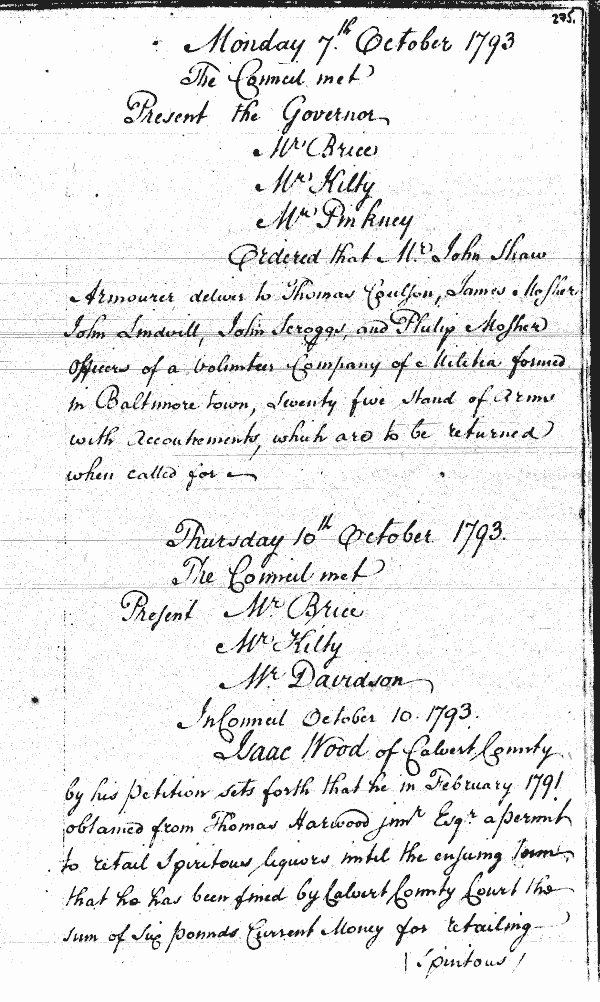 275.
Monday 7.th October 1793
The Council met
Present the Governor
Mr. Brice
Mr. Kilty
Mr. Pinkney
Ordered that Mr. John Shaw
Armourer deliver to Thomas Coulson, James Mosher
John Lindvill, John Scroggs, and Philip Mosher
Officers of a Volunteer Company of Militia formed
in Baltimore town, Twenty five Stand of Arms
with Accoutrements, which are to be returned
when called for
Thursday 10th October 1793.
The Council met
Present Mr. Brice
Mr. Kilty
Mr. Davidson
In Council October 10. 1793.
Isaac Wood of Calvert County
by his petition sets forth that he in February 1791
obtained from Thomas Harwood junr Esqr a permit
to retail Spiritous liquors until the ensuing Term,
that he has been fined by Calvert County Court the
sum of Six pounds Current Money for retailing
Spiritous